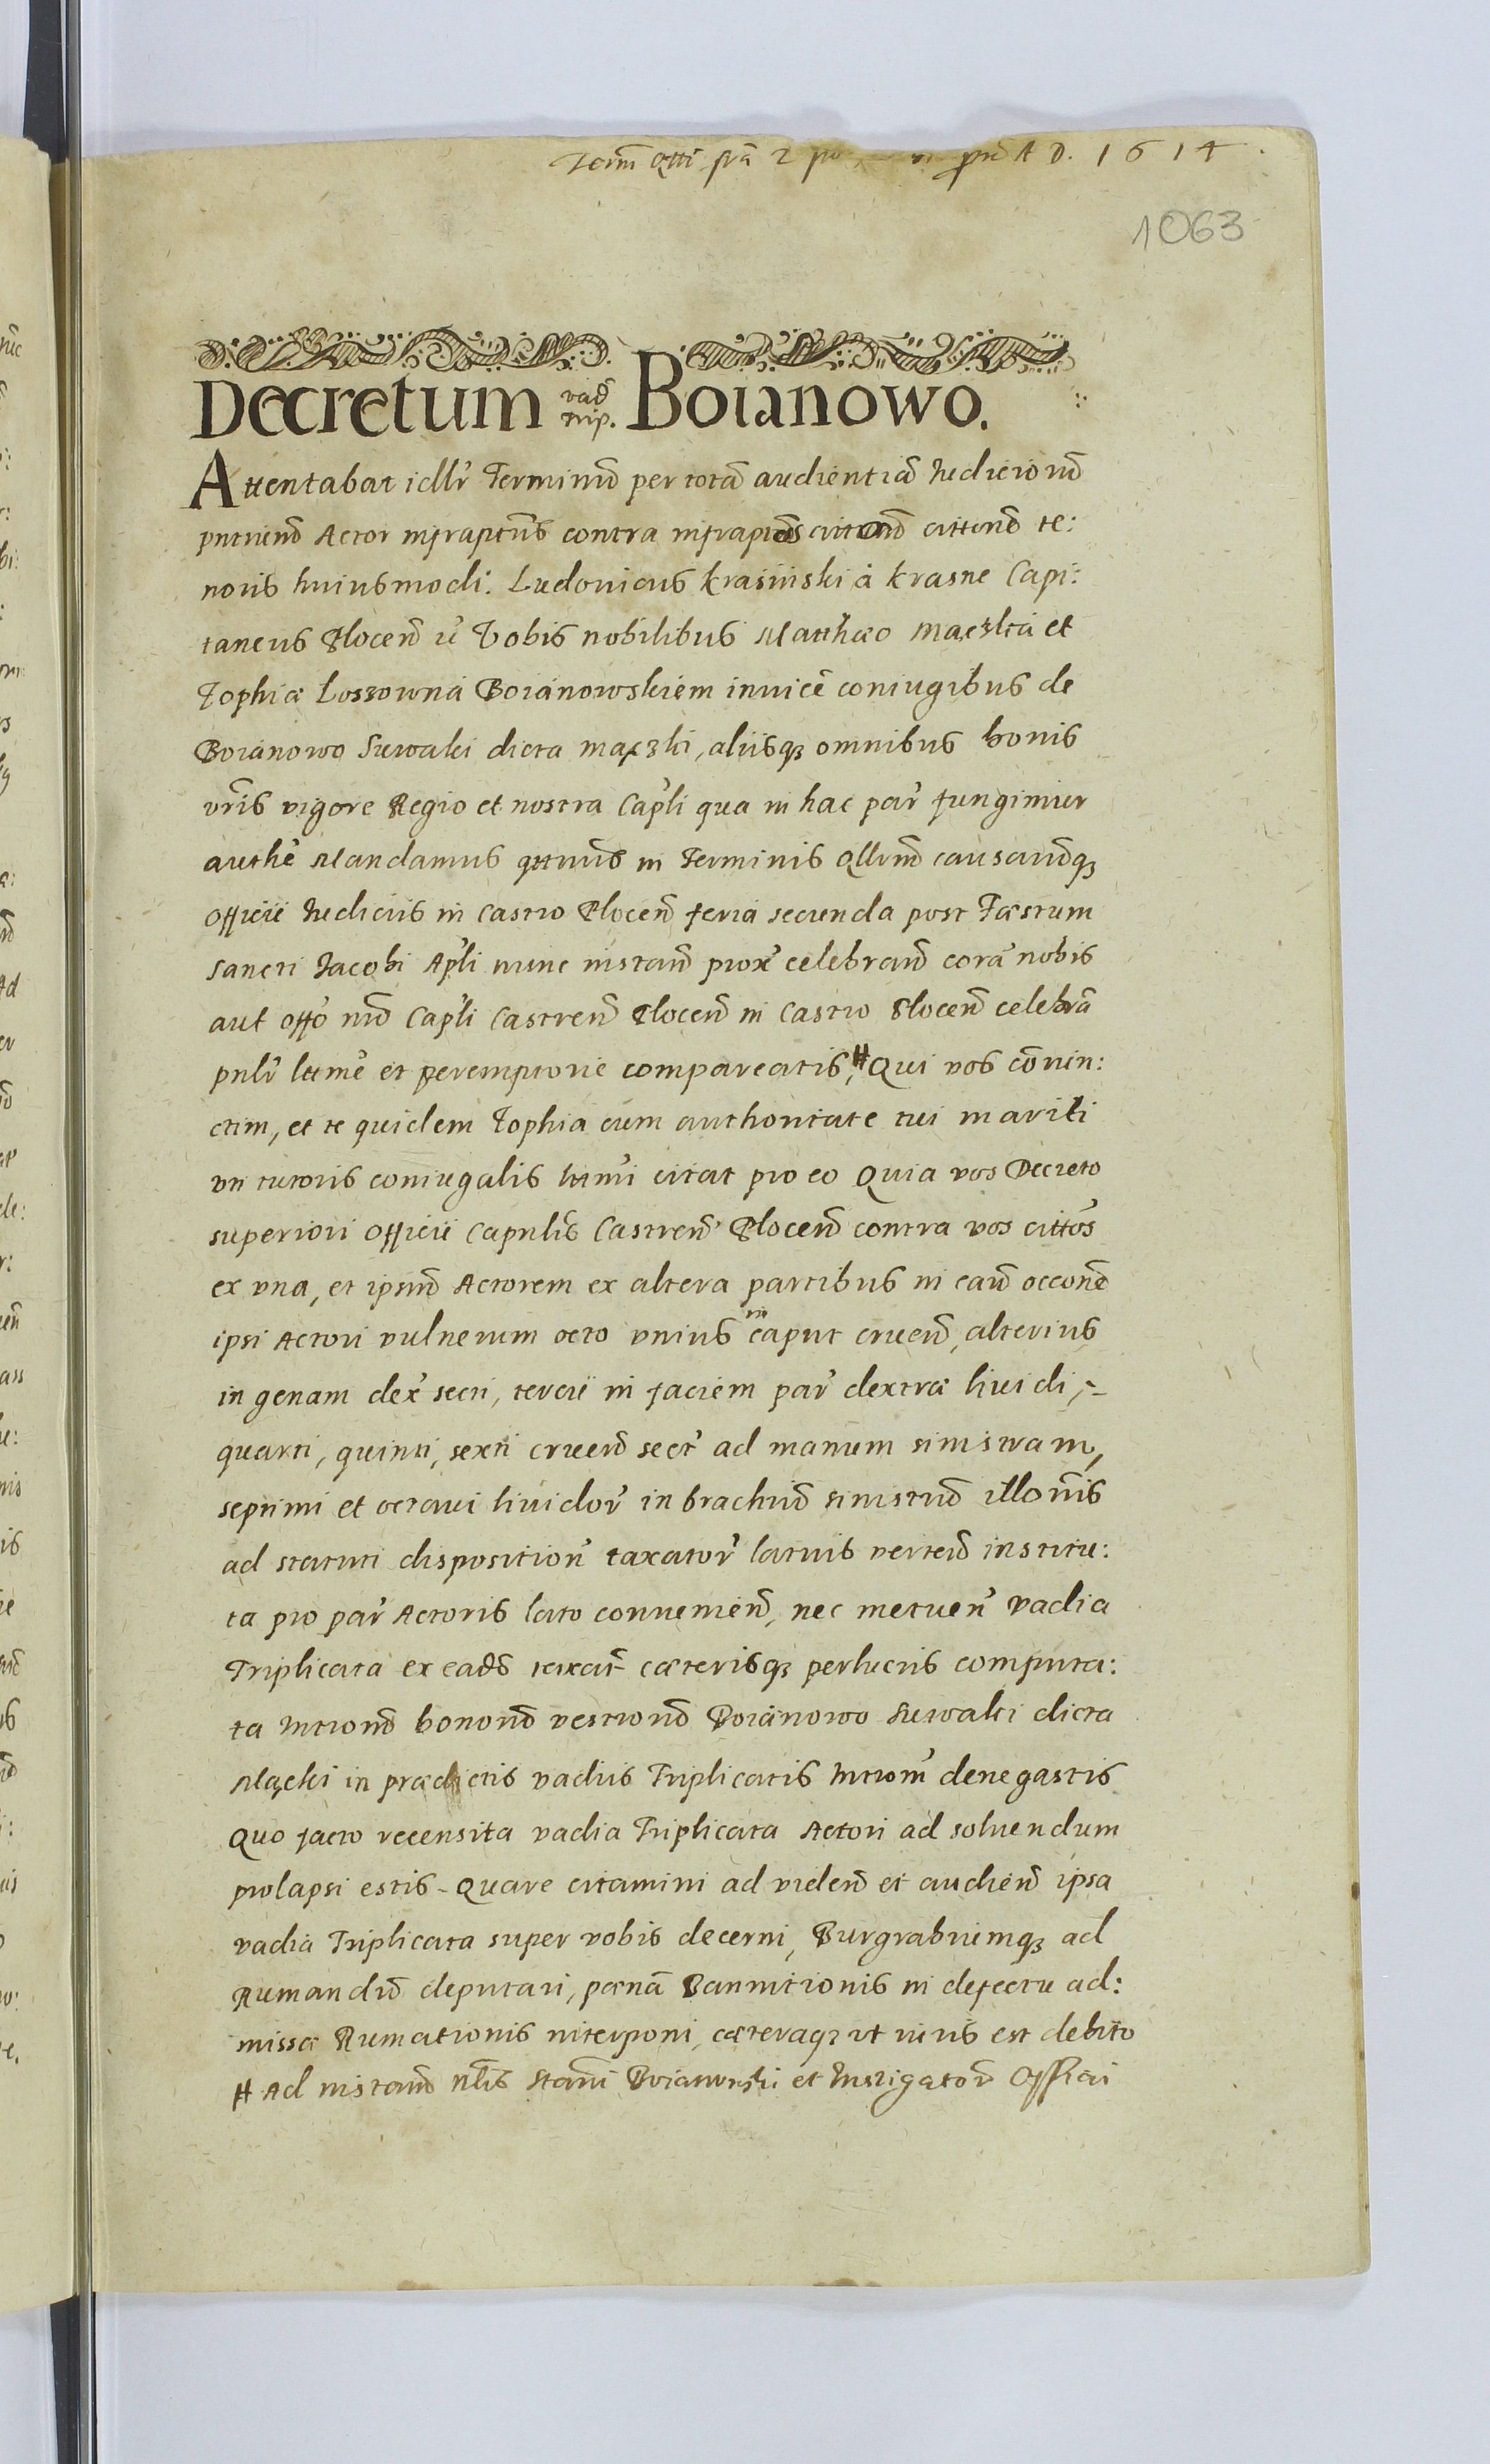 A D. 1614
1063
Decretum vad trip. Boianowo.
Attentabat idlr̃ Terminũ per totã audientiã Iudiciorũ
pntiũ Actor infraptũs contra infraptos citt̃orũ citt̃onẽ te:
noris huiusmodi: Ludovicus krasiński á krasne Capi:
taneus Plocen̄ ũ Vobis nobilibus Matthæo Mączká et
Zophiæ Lossowná Boiánowskiem inuicẽ coniugibus de
Boiánowo Suwaki dicta Mączki, aliisqȝ omnibus bonis
vr̃is vigore Regio et nostra Cap̃li qua in hac par̃ fungimur
authẽ Mandamus qttnũs in Terminis Qllrũ causarũqȝ
Officii Iudiciis in Castro Plocen̄ feria secunda post Fæstum
Sancti Iacobi Ap̃li nunc instan̄ prox̃ celebran̄ corã nobis
aut offõ nr̃o Cap̃li Castren̄ Plocen̄ in Castro Plocen̄ celebrã
pnlr̃ ltimẽ et peremptorie compareatis, # Qui vos cõniun:
ctim, et te quidem Zophia cum authoritate tui mariti
vti tutoris coniugalis ltimi citat pro eo Quia vos Decreto
superiori Officii Capnlis Castren̄ Plocen̄ contra vos cittos
ex vna, et ipsum Actorem ex altera partibus in caũ occonẽ
ipsi Actori vulnerum octo vnius in caput cruen̄, alterius
in genam dex̃ secti, tercii in faciem par̃ dextræ liuidi,
quarti, quinti, sexti cruen̄ sect̃ ad manum sinistram,
septimi et octaui liuidor̃ in brachiũ sinistrũ illõnis
ad statuti disposition̄ taxator̃ latius verten̄ institu:
ta pro par̃ Actoris lato conuenien̄, nec metuen̄ vadia
Triplicata ex eadẽ taxat̃ cæterisqȝ perlucris computa:
ta Intronẽ bonorũ vestrorũ Boiánowo Suwaki dicta
Mączki in prædictis vadiis Triplicatis Introm̃ denegastis
Quo facto recensita vadia Triplicata Actori ad soluendum
prolapsi estis - Quare citamini ad viden̄ et audien̄ ipsa
vadia Triplicata super vobis decerni, Burgrabiumqȝ ad
Rumandũ deputari, pœnã Bannitionis in defectu ad:
missæ Rumationis interponi, cæteraqȝ vt iuris est debito
# Ad instan̄ nlis Stani Boianowski et Instigator̃ Officii